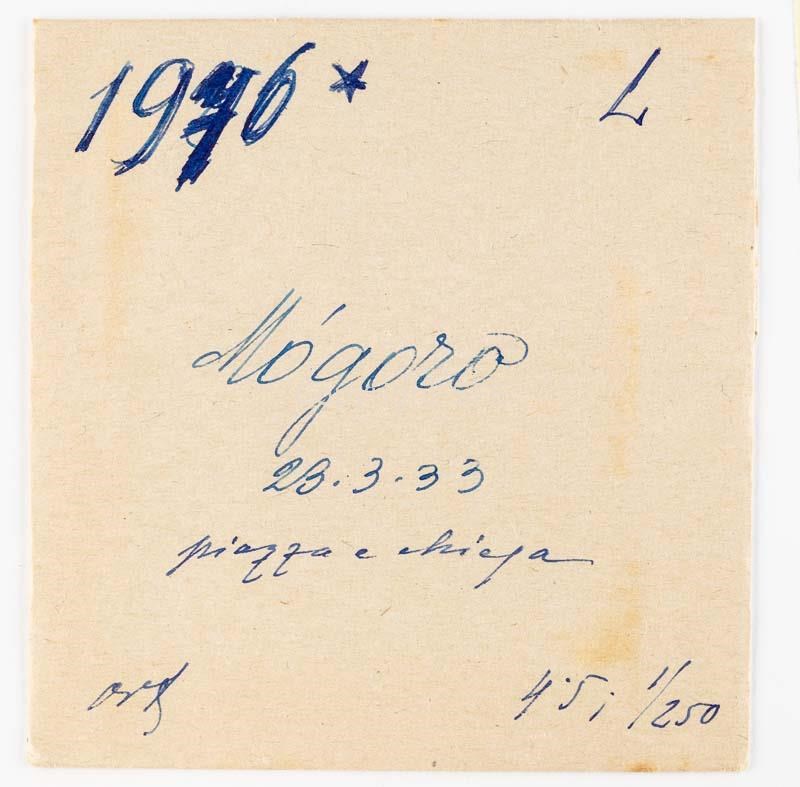 1946 * L
Mógoro
23.3.33
piazza e chiesa
ort
4.5; 1/250